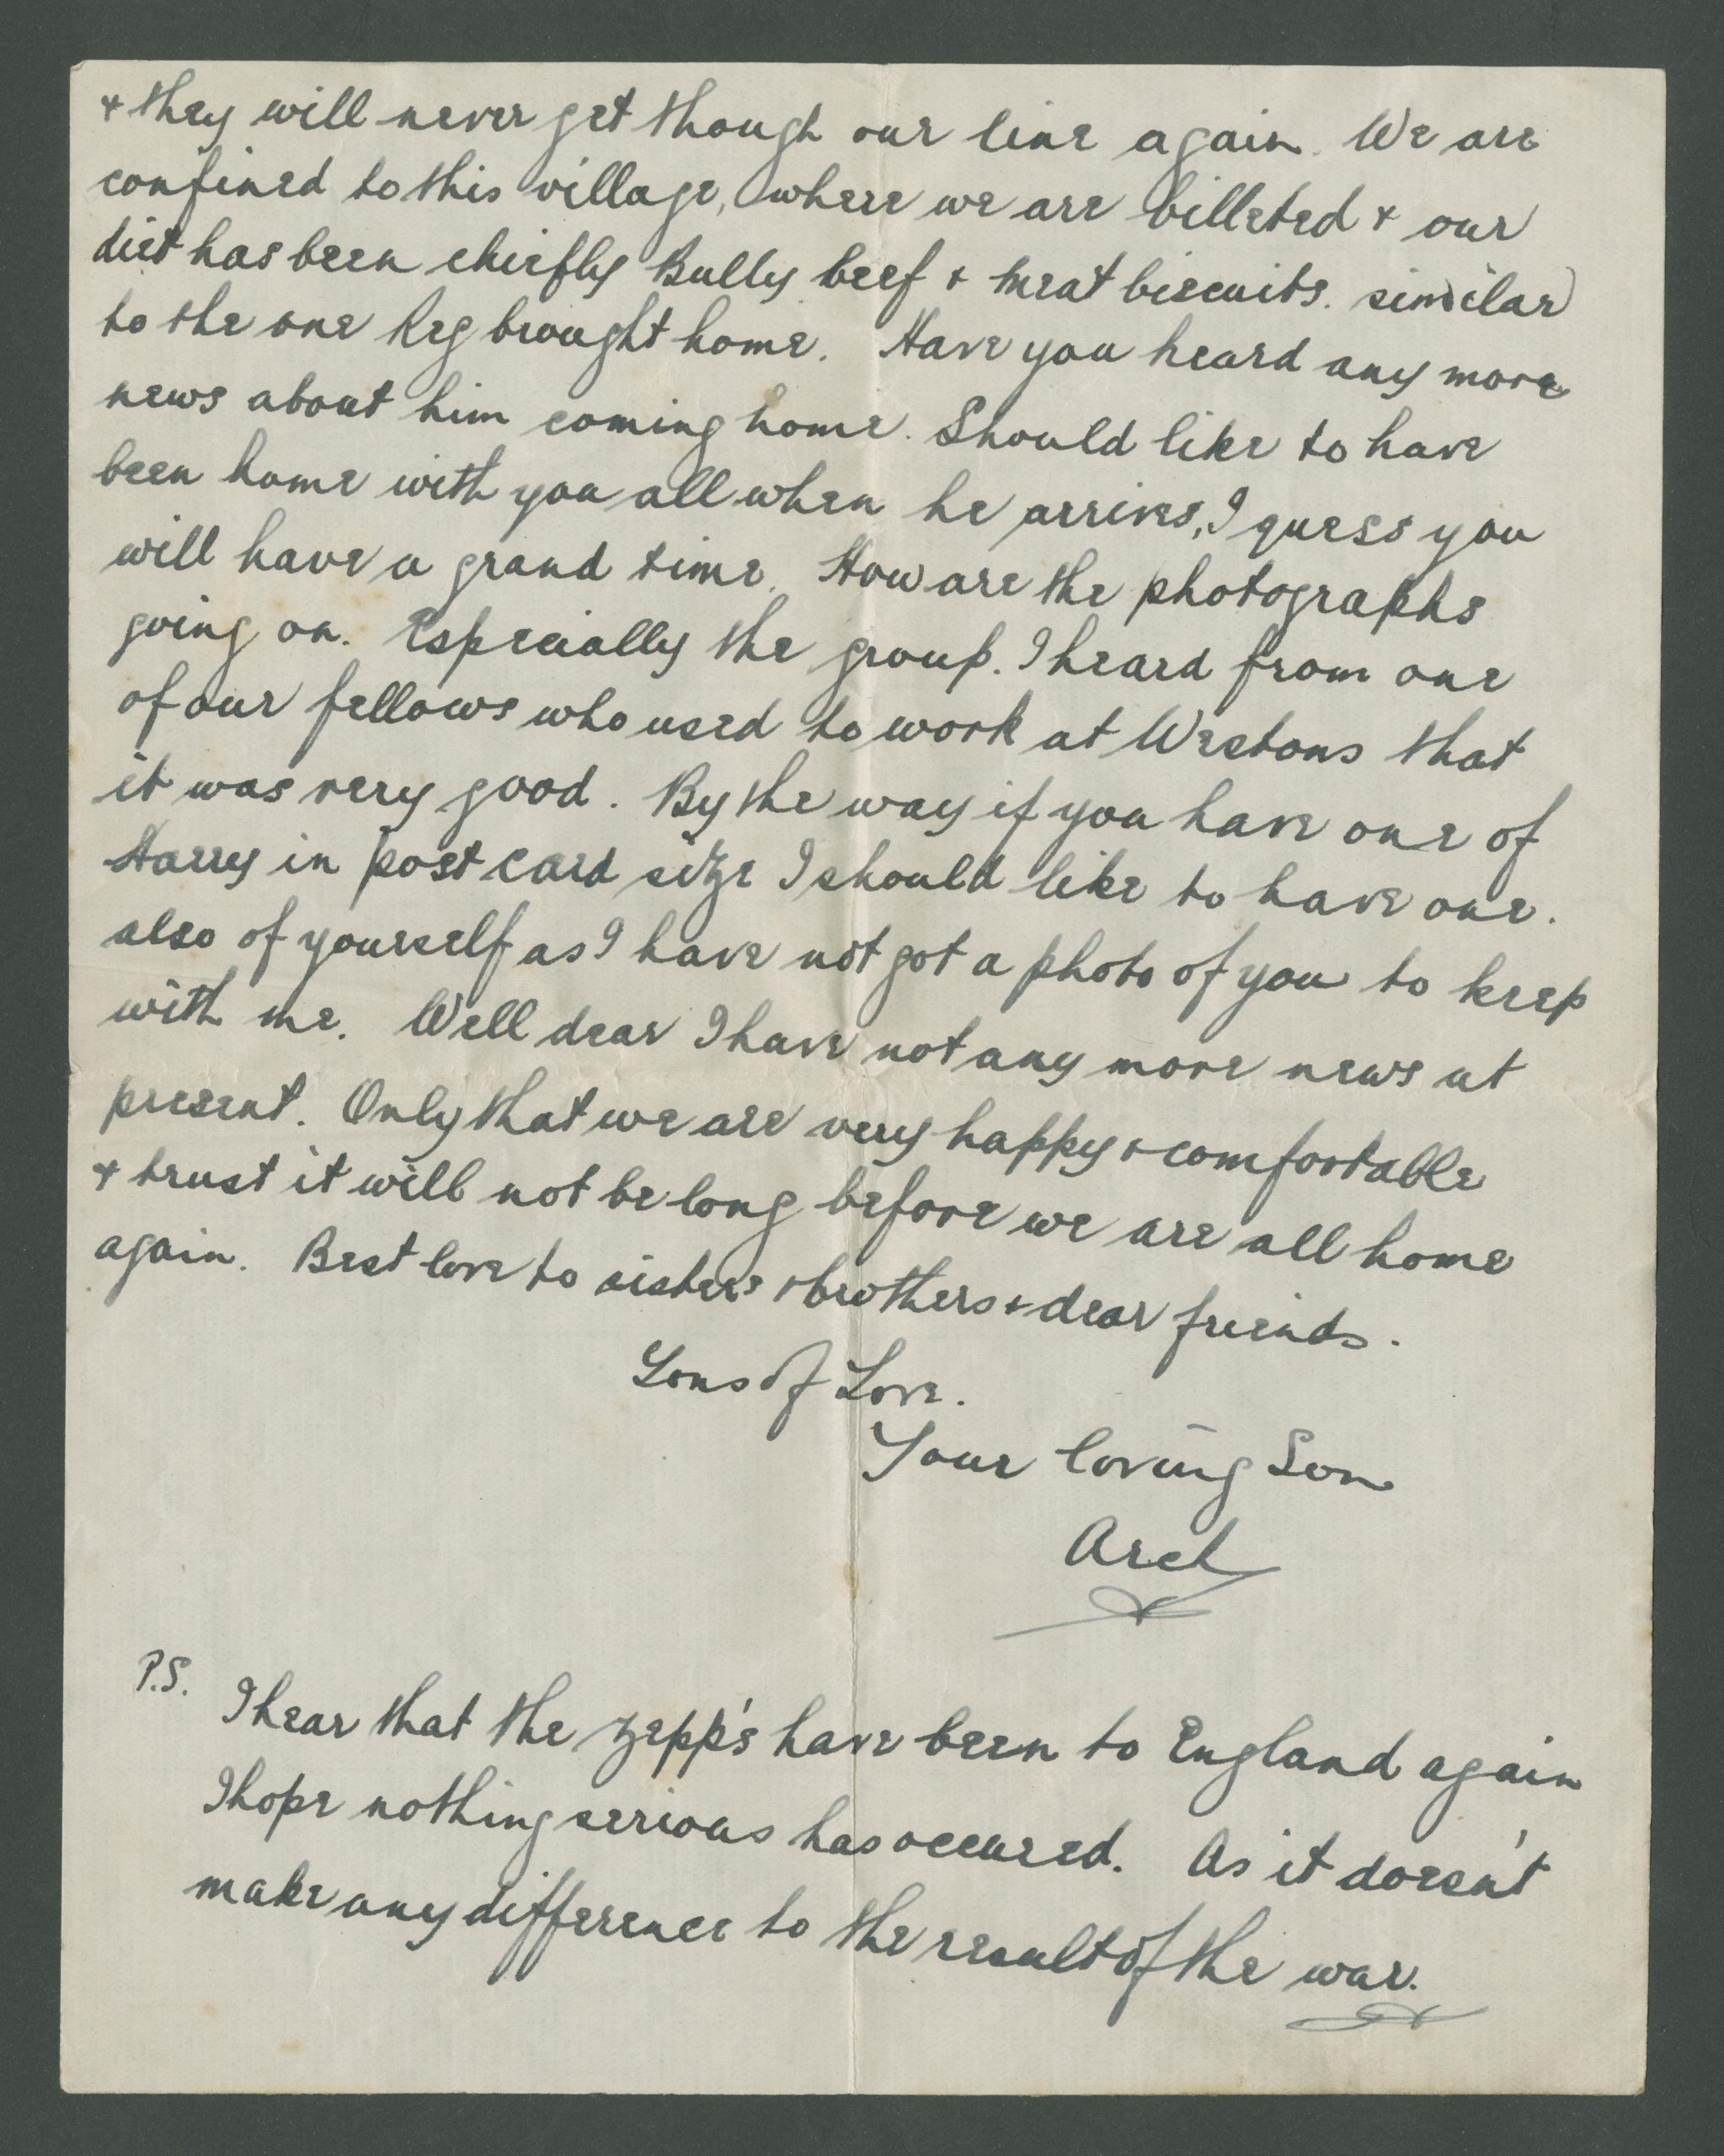 & they will never get though our line again. We are
confined to this village, where we are billeted & our
diet has been chiefly Bully beef & meat biscuits. similar
to the one Reg brought home. Have you heard any more
news about him coming home. Should like to have
been home with you all when he arrives, I guess you
will have a grand time. How are the photographs
going on. Especially the group. I heard from one
of our fellows who used to work at Westons that
it was very good. By the way if you have one of
Harry in post card sitze I should like to have one.
also of yourself as I have not got a photo of you to keep
with me. Well dear I have not any more news at
present. Only that we are very happy & comfortable
& trust it will not be long before we are all home
again. Best love to sisters & brothers & dear friends.
Tons of Love.
Your loving Son
Arch
P.S.
I hear that the zepp's have been to England again
I hope nothing serious has occured. As it doesn't
make any difference to the result of the war.